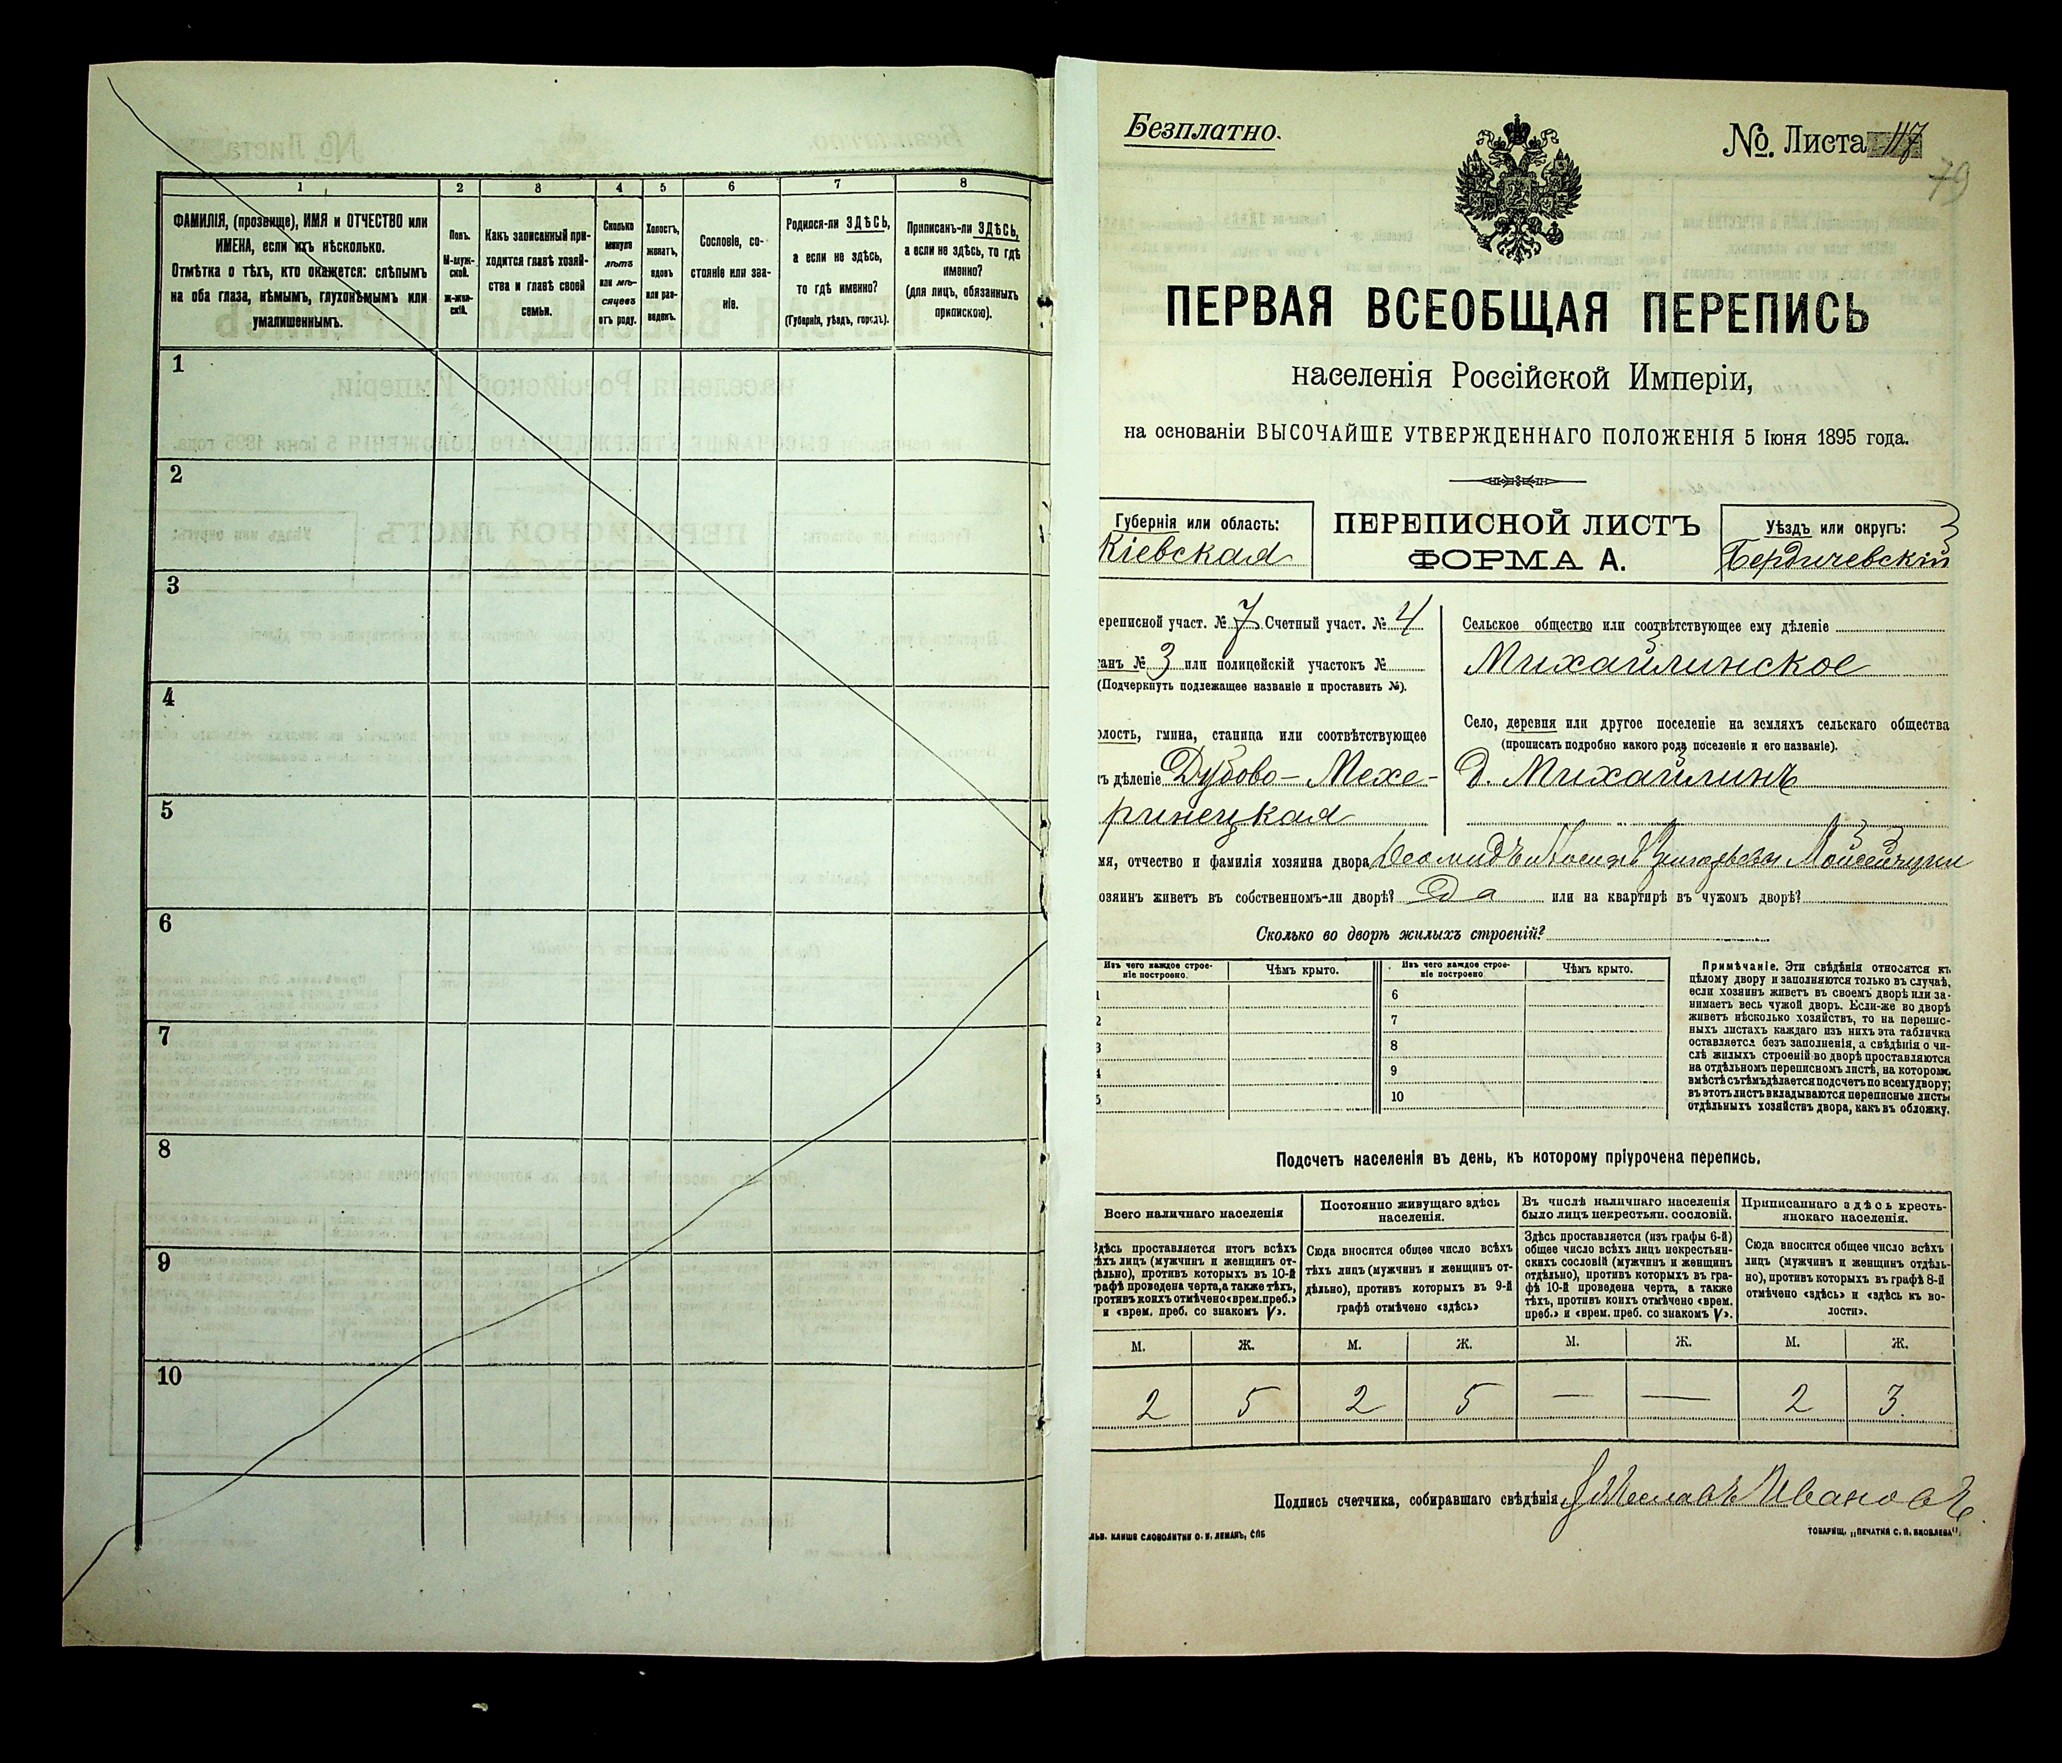 1 2 3 4 5 6 7 8
ФАМИЛІЯ, (прозвище), ИМЯ и ОТЧЕСТВО или
ИМЕНА, если ихъ нѣсколько.
Отмѣтка о тѣхъ, кто окажется: слѣпымъ
на оба глаза, нѣмымъ, глухонѣмымъ или
умалишеннымъ.
Полъ.
М-муж-
ской.
Ж-жен-
скій.
Какъ записанный при-
ходится главѣ хозяй-
ства и главѣ своей
семьи.
Сколько
минуло
лѣтъ
или мѣ-
сяцевъ
отъ роду.
Холостъ,
женатъ,
вдовъ
или раз-
веденъ.
Сословіе, со-
стояніе или зва-
ніе.
Родился-ли ЗДѢСЬ,
а если не здѣсь,
то гдѣ именно?
(Губернія, уѣздъ, городъ).
Приписанъ-ли ЗДѢСЬ,
а если не здѣсь, то гдѣ
именно?
(для лицъ, обязанныхъ
припискою).
1
2
3
4
5
6
7
8
9
10
Безплатно.
№. Листа 117
79
ПЕРВАЯ ВСЕОБЩАЯ ПЕРЕПИСЬ
населенія Россійской Имперіи,
на основаніи ВЫСОЧАЙШЕ УТВЕРЖДЕННАГО ПОЛОЖЕНІЯ 5 Іюня 1895 года.
Губернія или область:
Кіевская
ПЕРЕПИСНОЙ ЛИСТЪ
ФОРМА А.
Уѣздъ или округъ:
Бердичевскій
ереписной участ. № 7 Счетный участ. № 4
танъ № 3 или полицейскій участокъ №
(Подчеркнуть подлежащее названіе и проставить №).
олость, гмина, станица или соотвѣтствующее
ъ дѣленіе Дубово-Мехе-
ринецкая
Сельское общество или соотвѣтствующее ему дѣленіе
Михайлинское
Село, деревня или другое поселеніе на земляхъ сельскаго общества
(прописать подробно какого рода поселеніе и его названіе).
д. Михайлинъ
мя, отчество и фамилія хозяина двора
озяинъ живетъ въ собственномъ-ли дворѣ? Да или на квартирѣ въ чужомъ дворѣ?
Сколько во дворѣ жилыхъ строеній?
Изъ чего каждое строе-
ніе построено.
Чѣмъ крыто.
Изъ чего каждое строе-
ніе построено
Чѣмъ крыто.
1 6
2 7
3 8
4 9
5 10
Примѣчаніе. Эти свѣдѣнія относятся къ
цѣлому двору и заполняются только въ случаѣ,
если хозяинъ живетъ въ своемъ дворѣ или за-
нимаетъ весь чужой дворъ. Если-же во дворѣ
живетъ нѣсколько хозяйствъ, то на перепис-
ныхъ листахъ каждаго изъ нихъ эта табличка
оставляется безъ заполненія, а свѣдѣнія о чи-
слѣ жилыхъ строеній во дворѣ проставляются
на отдѣльномъ переписномъ листѣ, на которомъ
вмѣстѣ съ тѣмъ дѣлается подсчетъ по всему двору;
въ этотъ листъ вкладываются переписные листы
отдѣльныхъ хозяйствъ двора, какъ въ обложку.
Подсчетъ населенія въ день, къ которому пріурочена перепись.
Всего наличнаго населенія
Здѣсь проставляется итогъ всѣхъ
тѣхъ лицъ (мужчинъ и женщинъ от-
дѣльно), противъ которыхъ въ 10-й
графѣ проведена черта, а также тѣхъ,
противъ коихъ отмѣчено «врем. преб.»
и «врем. преб. со знакомъ V».
Постоянно живущаго здѣсь
населенія.
Сюда вносится общее число всѣхъ
тѣхъ лицъ (мужчинъ и женщинъ от-
дѣльно), противъ которыхъ въ 9-й
графѣ отмѣчено «здѣсь»
Въ числѣ наличнаго населенія
было лицъ некрестьян. сословій.
Здѣсь проставляется (изъ графы 6-й)
общее число всѣхъ лицъ некрестьян-
скихъ сословій (мужчинъ и женщинъ
отдѣльно), противъ которыхъ въ гра-
фѣ 10-й проведена черта, а также
тѣхъ, противъ коихъ отмѣчено «врем.
преб.» и «врем. преб. со знакомъ V».
Приписаннаго здѣсь кресть-
янскаго населенія.
Сюда вносится общее число всѣхъ
лицъ (мужчинъ и женщинъ отдѣль-
но), противъ которыхъ въ графѣ 8-й
отмѣчено «здѣсь» и «здѣсь къ во-
лости».
М. Ж. М. Ж. М. Ж. М. Ж.
2 5 2 5 — — 2 3.
Подпись счетчика, собиравшаго свѣдѣнія Ивановъ
КЛИШЕ СЛОВОЛИТНИ О. И. ЛЕМАНЪ, СПБ
ТОВАРИЩ. „ПЕЧАТНЯ С. П. ЯКОВЛЕВА".